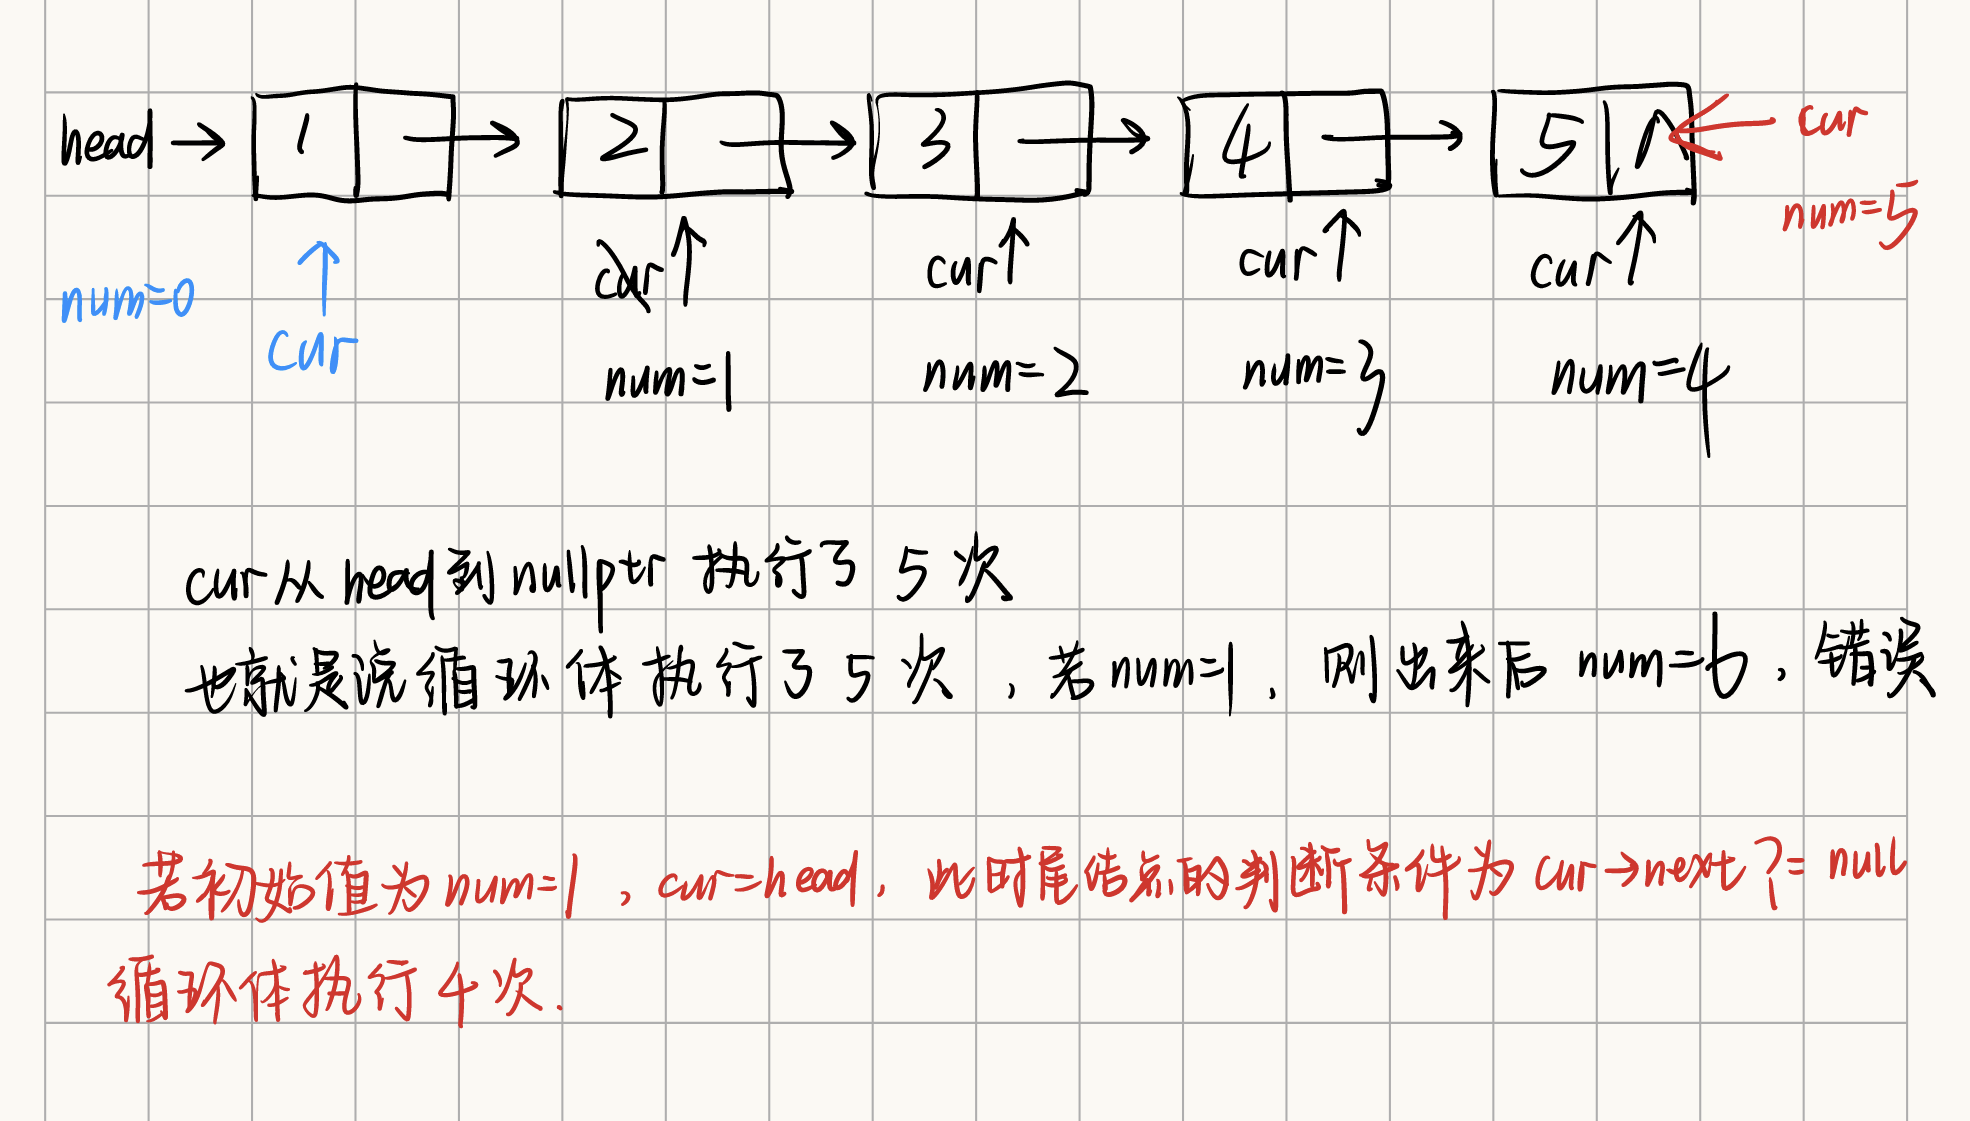 head → 1 2 3 4 5 ∧ cur
num=5
cur cur cur cur
num=0 cur
num=1 num=2 num=3 num=4
cur从head到nullptr 执行了 5 次
也就是说循环体执行了 5 次，若num=1，则出来后 num=6，错误
若初始值为num=1，cur=head，此时尾结点的判断条件为 cur→next ?= null
循环体执行4次.